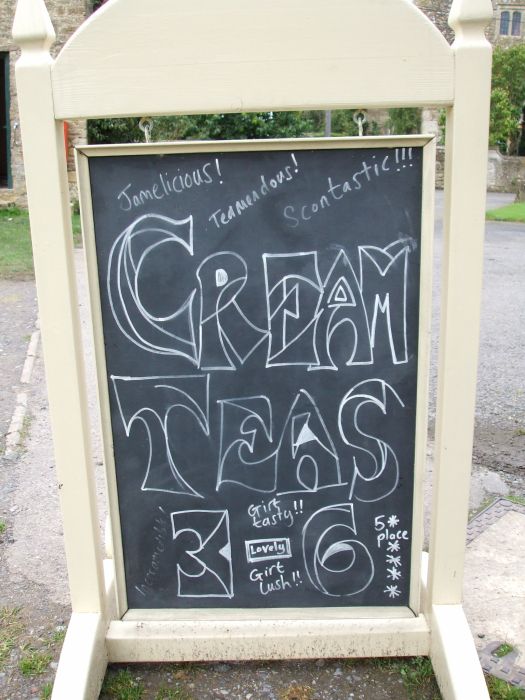 Jamelicious!
Teamendous!
Scontastic!!!
CREAM
TEAS
Girt
tasty!!
3
Lovely
6
Girt
lush!!
5*
place
*
*
*
*